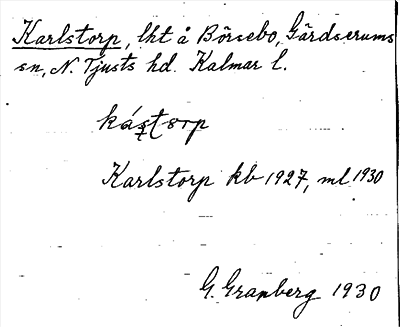 Karlstorp, lht å Börsebo, Gärdserums
sn, N. Tjusts hd. Kalmar l.
kástorp
Karlstorp kb 1927, ml 1930
G. Granberg 1930